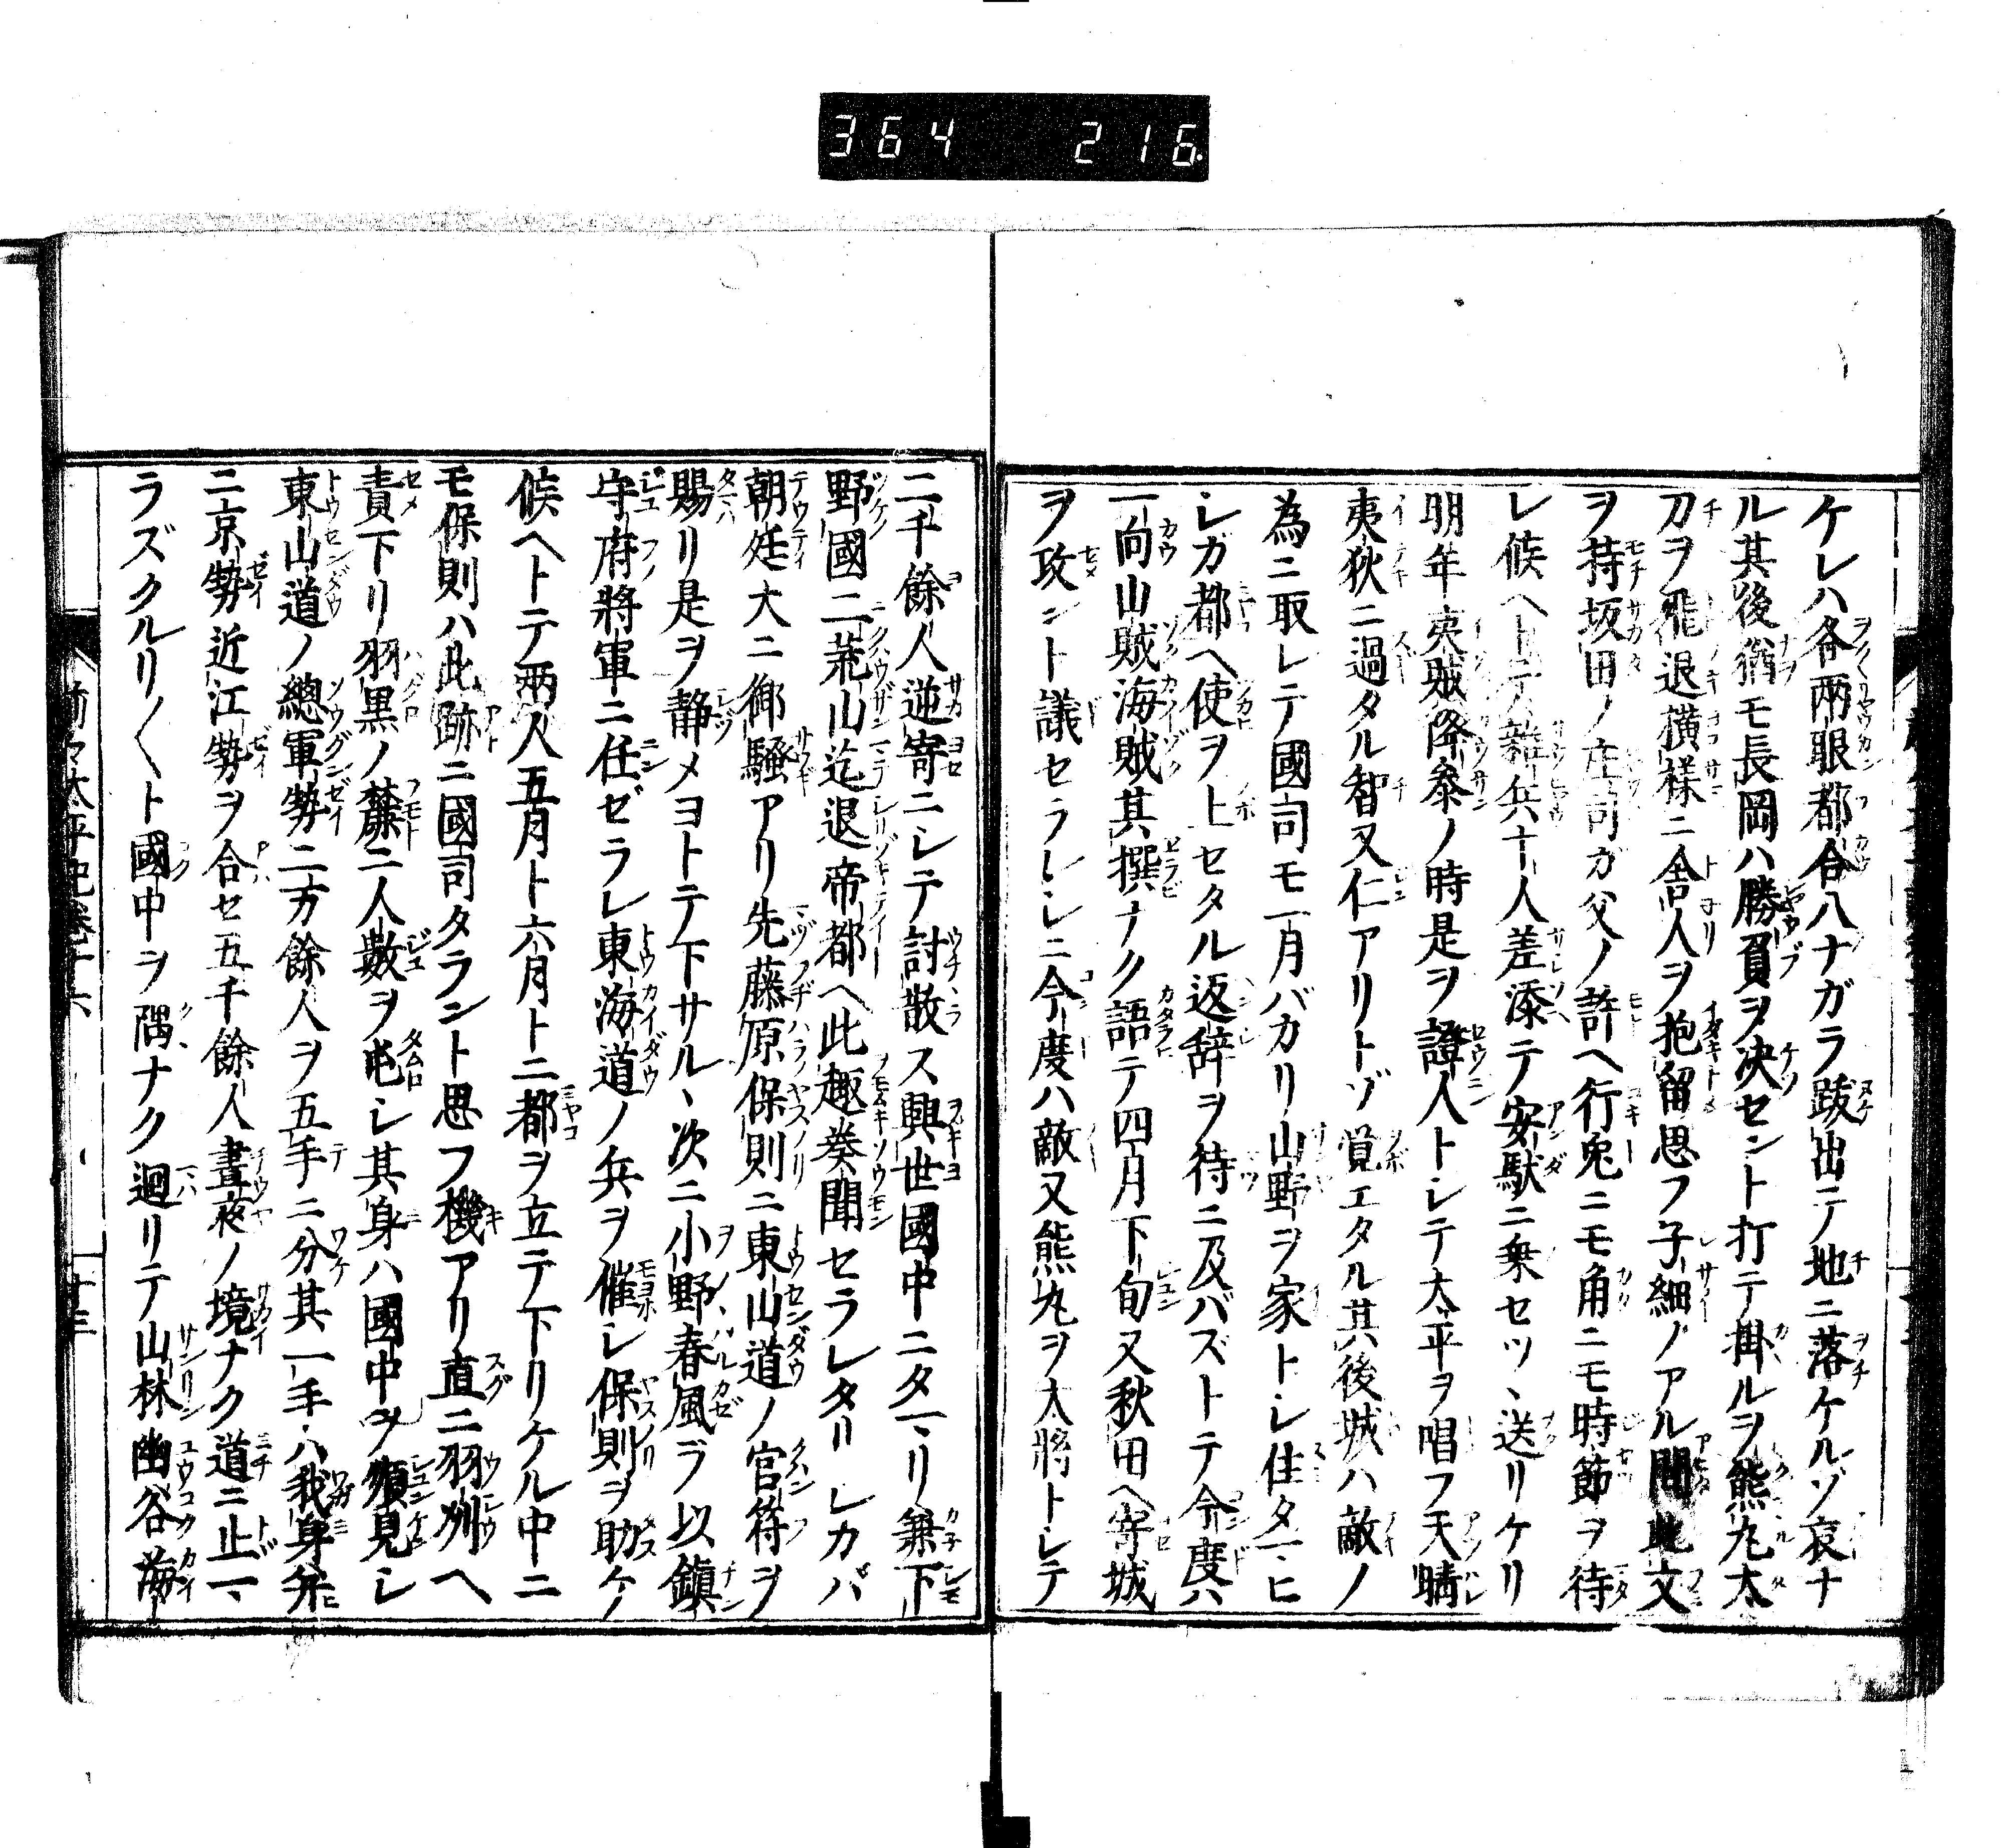 364 216
ケレハ各両眼都合八ナガラ跋出テ地ニ落ケルゾ哀ナ
ル其後猶モ長岡ハ勝負ヲ决セント打テ掛ルヲ熊丸太
刀ヲ飛退横様ニ舎人ヲ抱留思フ子細ノアル間此文
ヲ持坂田ノ庄司ガ父ノ許ヘ行兎ニモ角ニモ時節ヲ待
レ候ヘトテ雑兵十人差添テ安駄ニ乗セツヽ送リケリ
明年夷賊降参ノ時是ヲ證人トシテ太平ヲ唱フ天晴
夷狄ニ過タル智又仁アリトゾ覚エタル其後城ハ敵ノ
為ニ取レテ國司モ一月バカリ山野ヲ家トシ住タマヒ
シガ都ヘ使ヲ上セタル返辞ヲ待ニ及バズトテ今度ハ
一向山賊海賊其撰ナク語テ四月下旬又秋田ヘ寄城
ヲ攻ント議セラレシニ今度ハ敵又熊丸ヲ大將トシテ
二千餘人逆寄ニシテ討散ス興世國中ニタマリ兼下
野國二荒山迄退帝都ヘ此趣奏聞セラレタリシカバ
朝廷大ニ御騒アリ先藤原保則ニ東山道ノ官符ヲ
賜リ是ヲ静メヨトテ下サル丶次ニ小野春風ヲ以鎮
守府將軍ニ任ゼラレ東海道ノ兵ヲ催シ保則ヲ助ケ
候ヘトテ両人五月ト六月トニ都ヲ立テ下リケル中ニ
モ保則ハ此跡ニ國司タラント思フ機アリ直ニ羽州ヘ
責下リ羽黒ノ麓ニ人數ヲ屯シ其身ハ國中ヲ順見シ
東山道ノ總軍勢二万餘人ヲ五手ニ分其一手ハ我身并
ニ京勢近江勢ヲ合セ五千餘人晝夜ノ境ナク道ニ止マ
ラズクルリ〱ト國中ヲ隅ナク廻リテ山林幽谷海
前々太平記巻十六
十三